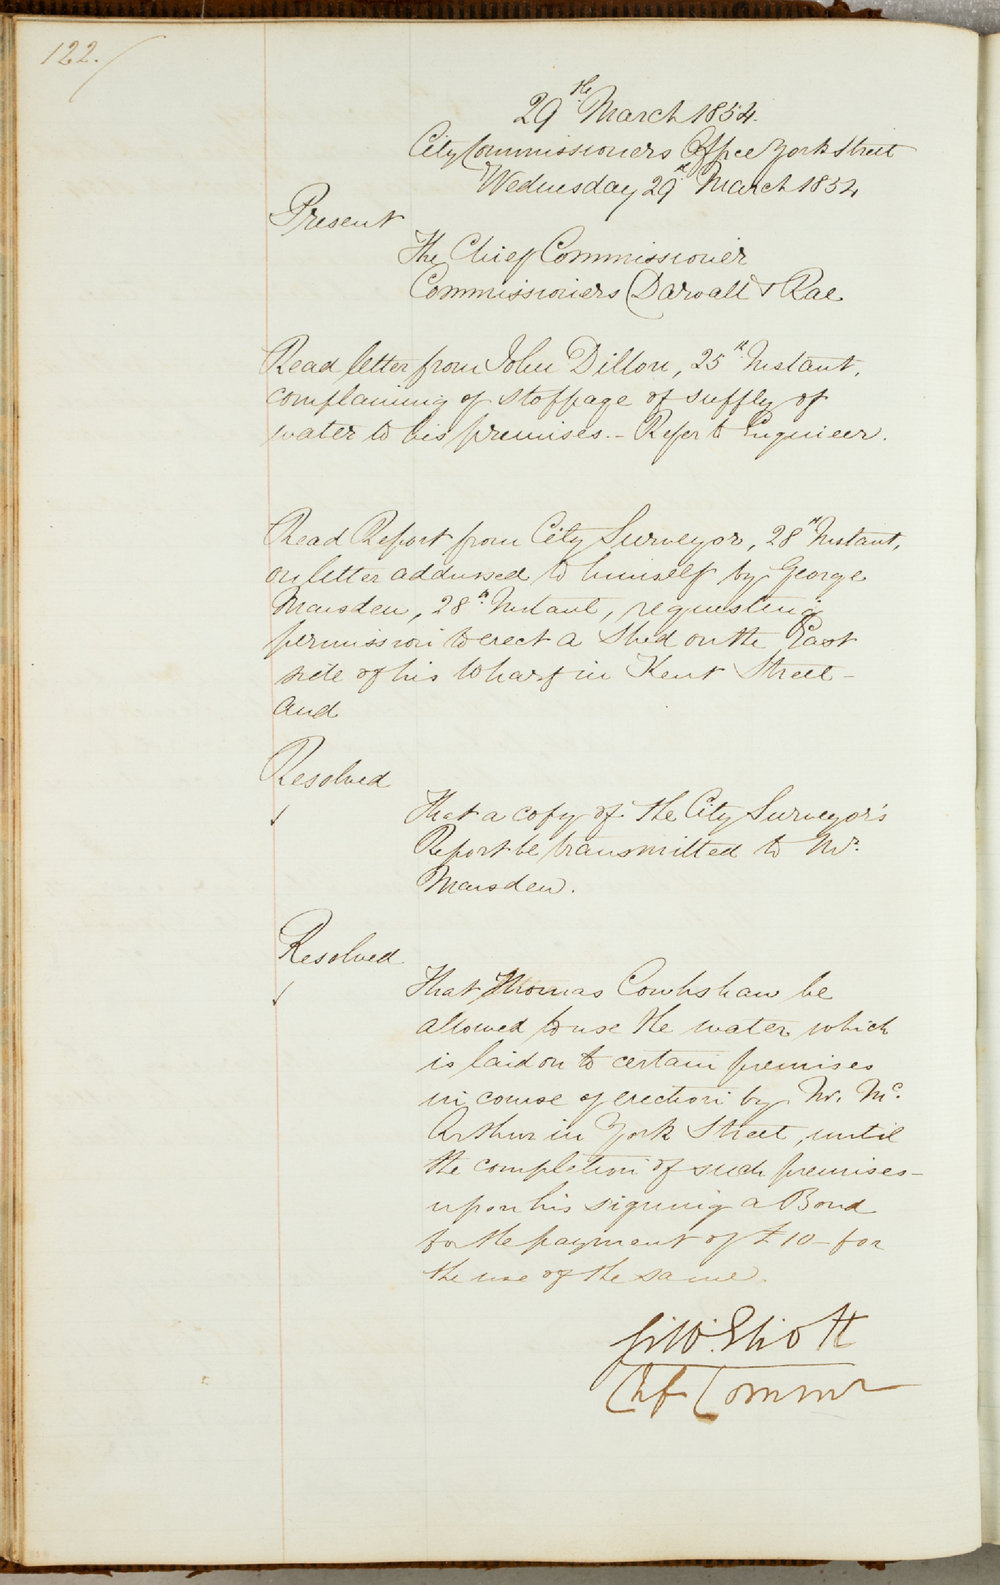 122.
29th March 1854.
City Commissioners Office York Street
Wednesday 29th March 1854
Present
The Chief Commissioner
Commissioners Darvall & Rae
Read letter from John Dillon, 25th Instant,
complaining of stoppage of supply of
water to his premises. - Refer to Engineer.
Read Report from City Surveyor, 28th Instant,
on letter addressed to himself by George
Marsden, 28th Instant, requesting
permission to erect a Shed on the East
side of his Wharf in Kent Street -
and
Resolved
That a copy of the City Surveyor's
Report be transmitted to Mr.
Marsden.
Resolved
That Thomas Cowlishaw be
allowed to use the water which
is laid on to certain premises
in course of erection by Mr. Mc.
Arthur in York Street, until
the completion of such premises -
upon his signing a Bond
for the payment of £10 - for
the use of the same.
G. W. Eliott
Chf Commr